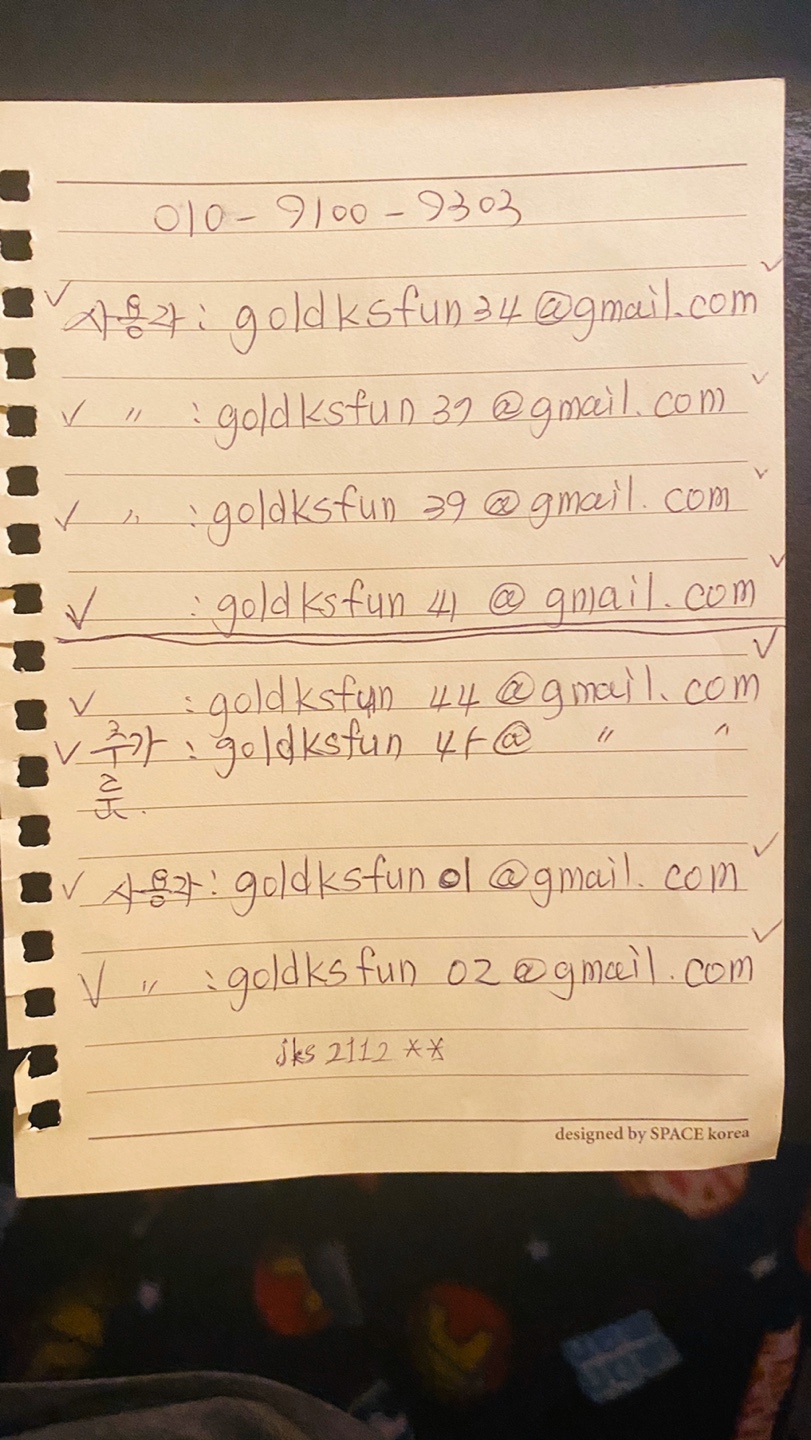 010-9100-9303
✓ 사용자 : goldksfun34@gmail.com ✓
✓ 〃 : goldksfun 37 @gmail.com ✓
✓ 〃 : goldksfun 39 @gmail.com ✓
✓ : goldksfun 41 @gmail.com ✓
✓ : goldksfun 44 @gmail.com ✓
✓ 추가 : goldksfun 45@ 〃 〃
사용자 : goldksfun01@gmail.com ✓
✓ 〃 : goldksfun 02@gmail.com ✓
jks 2112 **
designed by SPACE korea